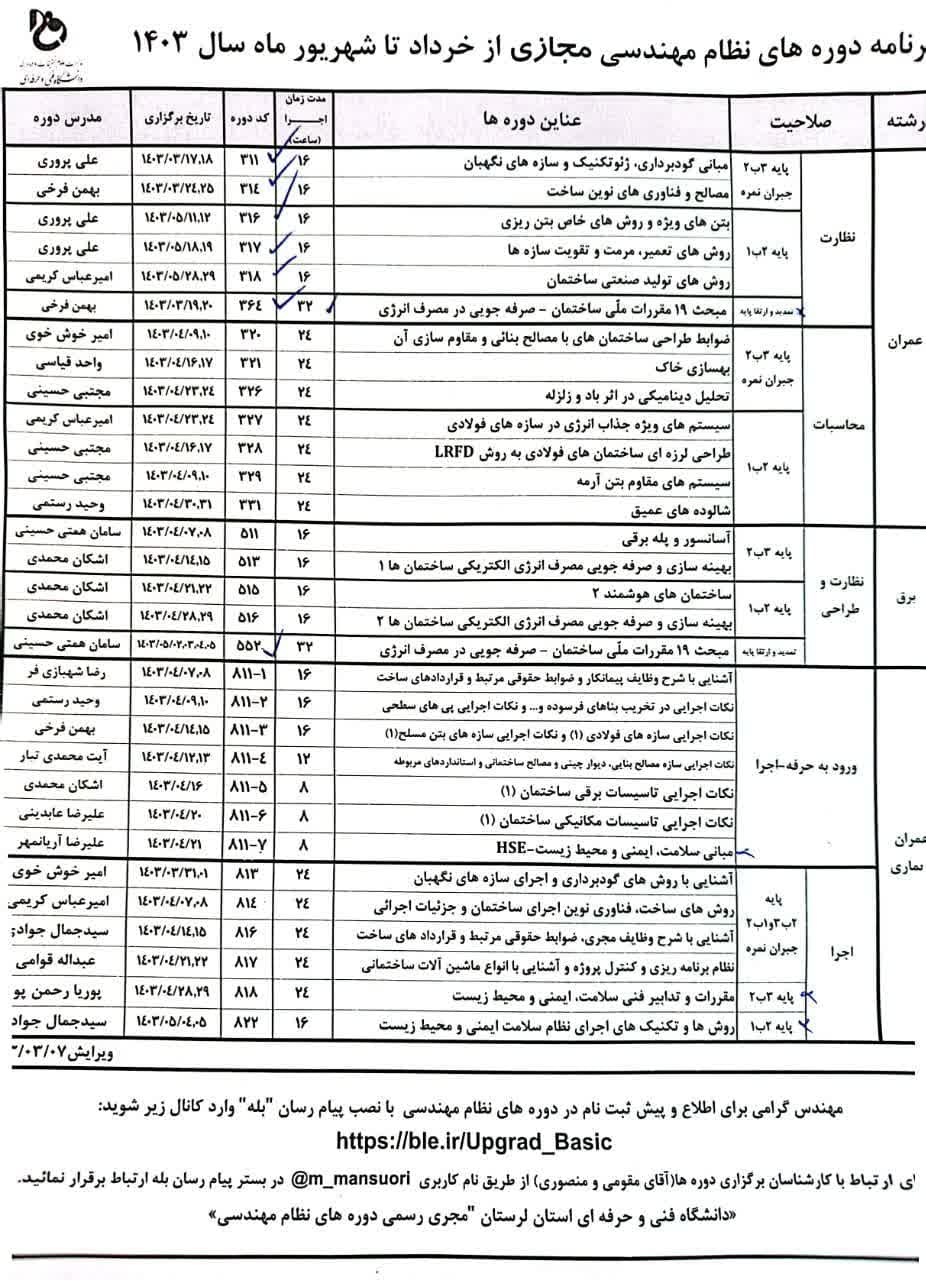 رنامه دوره های نظام مهندسی مجازی از خرداد تا شهریور ماه سال ۱۴۰۳
دانشگاه فنی و حرفه ای
رشته صلاحیت عناوین دوره ها مدت زمان اجرا (ساعت) کد دوره تاریخ برگزاری مدرس دوره
عمران نظارت پایه ۳ب۲ جبران نمره مبانی گودبرداری، ژئوتکنیک و سازه های نگهبان ۱۶ ۳۱۱ ۱۴۰۳/۰۳/۱۷،۱۸ علی پروری
مصالح و فناوری های نوین ساخت ۱۶ ۳۱۴ ۱۴۰۳/۰۳/۲۴،۲۵ بهمن فرخی
پایه ۲ب۱ بتن های ویژه و روش های خاص بتن ریزی ۱۶ ۳۱۶ ۱۴۰۳/۰۵/۱۱،۱۲ علی پروری
روش های تعمیر، مرمت و تقویت سازه ها ۱۶ ۳۱۷ ۱۴۰۳/۰۵/۱۸،۱۹ علی پروری
روش های تولید صنعتی ساختمان ۱۶ ۳۱۸ ۱۴۰۳/۰۵/۲۸،۲۹ امیرعباس کریمی
تمدید و ارتقا پایه مبحث ۱۹ مقررات ملّی ساختمان - صرفه جویی در مصرف انرژی ۳۲ ۳۶۴ ۱۴۰۳/۰۳/۱۹،۲۰ بهمن فرخی
محاسبات پایه ۳ب۲ جبران نمره ضوابط طراحی ساختمان های با مصالح بنائی و مقاوم سازی آن ۲۴ ۳۲۰ ۱۴۰۳/۰۴/۰۹،۱۰ امیر خوش خوی
بهسازی خاک ۲۴ ۳۲۱ ۱۴۰۳/۰۴/۱۶،۱۷ واحد قیاسی
تحلیل دینامیکی در اثر باد و زلزله ۲۴ ۳۲۶ ۱۴۰۳/۰۴/۲۳،۲۴ مجتبی حسینی
پایه ۲ب۱ سیستم های ویژه جذاب انرژی در سازه های فولادی ۲۴ ۳۲۷ ۱۴۰۳/۰۴/۲۳،۲۴ امیرعباس کریمی
طراحی لرزه ای ساختمان های فولادی به روش LRFD ۲۴ ۳۲۸ ۱۴۰۳/۰۴/۱۶،۱۷ مجتبی حسینی
سیستم های مقاوم بتن آرمه ۲۴ ۳۲۹ ۱۴۰۳/۰۴/۰۹،۱۰ مجتبی حسینی
شالوده های عمیق ۲۴ ۳۳۱ ۱۴۰۳/۰۴/۳۰،۳۱ وحید رستمی
برق نظارت و طراحی پایه ۳ب۲ آسانسور و پله برقی ۱۶ ۵۱۱ ۱۴۰۳/۰۴/۰۷،۰۸ سامان همتی حسینی
بهینه سازی و صرفه جویی مصرف انرژی الکتریکی ساختمان ها ۱ ۱۶ ۵۱۳ ۱۴۰۳/۰۴/۱۴،۱۵ اشکان محمدی
پایه ۲ب۱ ساختمان های هوشمند ۲ ۱۶ ۵۱۵ ۱۴۰۳/۰۴/۲۱،۲۲ اشکان محمدی
بهینه سازی و صرفه جویی مصرف انرژی الکتریکی ساختمان ها ۲ ۱۶ ۵۱۶ ۱۴۰۳/۰۴/۲۸،۲۹ اشکان محمدی
تمدید و ارتقا پایه مبحث ۱۹ مقررات ملّی ساختمان - صرفه جویی در مصرف انرژی ۳۲ ۵۵۲ ۱۴۰۳/۰۵/۰۲،۰۳،۰۴،۰۵ سامان همتی حسینی
عمران معماری ورود به حرفه-اجرا آشنایی با شرح وظایف پیمانکار و ضوابط حقوقی مرتبط و قراردادهای ساخت ۱۶ ۸۱۱-۱ ۱۴۰۳/۰۴/۰۷،۰۸ رضا شهبازی فر
نکات اجرایی در تخریب بناهای فرسوده و... و نکات اجرایی پی های سطحی ۱۶ ۸۱۱-۲ ۱۴۰۳/۰۴/۰۹،۱۰ وحید رستمی
نکات اجرایی سازه های فولادی (۱) و نکات اجرایی سازه های بتن مسلح(۱) ۱۶ ۸۱۱-۳ ۱۴۰۳/۰۴/۱۴،۱۵ بهمن فرخی
نکات اجرایی سازه مصالح بنایی، دیوار چینی و مصالح ساختمانی و استانداردهای مربوطه ۱۲ ۸۱۱-۴ ۱۴۰۳/۰۴/۱۲،۱۳ آیت محمدی تبار
نکات اجرایی تاسیسات برقی ساختمان (۱) ۸ ۸۱۱-۵ ۱۴۰۳/۰۴/۱۶ اشکان محمدی
نکات اجرایی تاسیسات مکانیکی ساختمان (۱) ۸ ۸۱۱-۶ ۱۴۰۳/۰۴/۲۰ علیرضا عابدینی
مبانی سلامت، ایمنی و محیط زیست-HSE ۸ ۸۱۱-۷ ۱۴۰۳/۰۴/۲۱ علیرضا آریانمهر
اجرا پایه ۳ب۲و۲ب۱ جبران نمره آشنایی با روش های گودبرداری و اجرای سازه های نگهبان ۲۴ ۸۱۳ ۱۴۰۳/۰۳/۳۱،۰۱ امیر خوش خوی
روش های ساخت، فناوری نوین اجرای ساختمان و جزئیات اجرائی ۲۴ ۸۱۴ ۱۴۰۳/۰۴/۰۷،۰۸ امیرعباس کریمی
آشنایی با شرح وظایف مجری، ضوابط حقوقی مرتبط و قرارداد های ساخت ۲۴ ۸۱۶ ۱۴۰۳/۰۴/۱۴،۱۵ سیدجمال جوادی
نظام برنامه ریزی و کنترل پروژه و آشنایی با انواع ماشین آلات ساختمانی ۲۴ ۸۱۷ ۱۴۰۳/۰۴/۲۱،۲۲ عبداله قوامی
پایه ۳ب۲ مقررات و تدابیر فنی سلامت، ایمنی و محیط زیست ۲۴ ۸۱۸ ۱۴۰۳/۰۴/۲۸،۲۹ پوریا رحمن پو
پایه ۲ب۱ روش ها و تکنیک های اجرای نظام سلامت ایمنی و محیط زیست ۱۶ ۸۲۲ ۱۴۰۳/۰۵/۰۴،۰۵ سیدجمال جواد
ویرایش ۳/۰۳/۰۷
مهندس گرامی برای اطلاع و پیش ثبت نام در دوره های نظام مهندسی با نصب پیام رسان "بله" وارد کانال زیر شوید:
https://ble.ir/Upgrad_Basic
ای ارتباط با کارشناسان برگزاری دوره ها(آقای مقومی و منصوری) از طریق نام کاربری @m_mansuori در بستر پیام رسان بله ارتباط برقرار نمائید.
«دانشگاه فنی و حرفه ای استان لرستان "مجری رسمی دوره های نظام مهندسی»